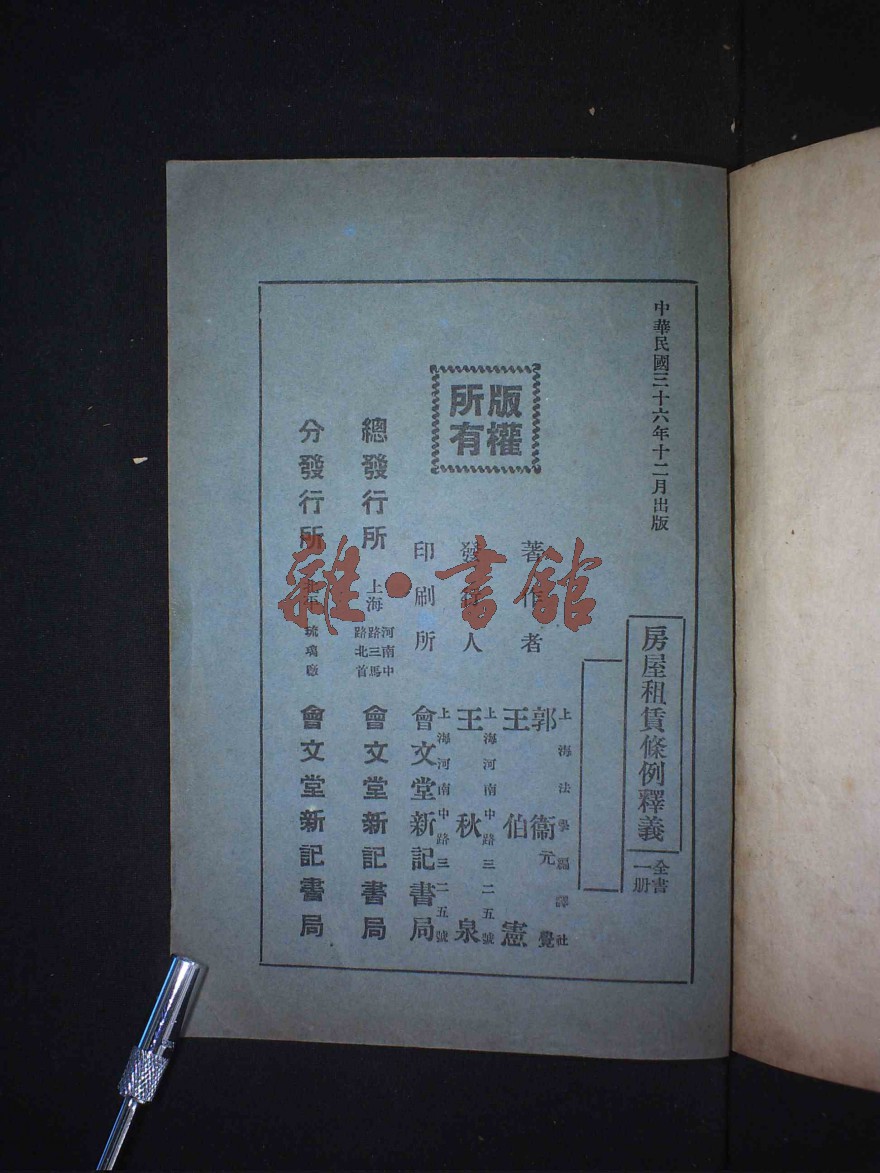 中華民國三十六年十二月出版
房屋租賃條例釋義
全書
一册
著作者
上海法學編譯社
郭衞
元覺
王伯憲
發行人
上海河南中路三二五號
王秋泉
印刷所
上海河南中路三二五號
會文堂新記書局
版權
所有
總發行所
上海
河南中
路三馬
路北首
會文堂新記書局
分發行所
北平
琉璃廠
會文堂新記書局
雜·書館